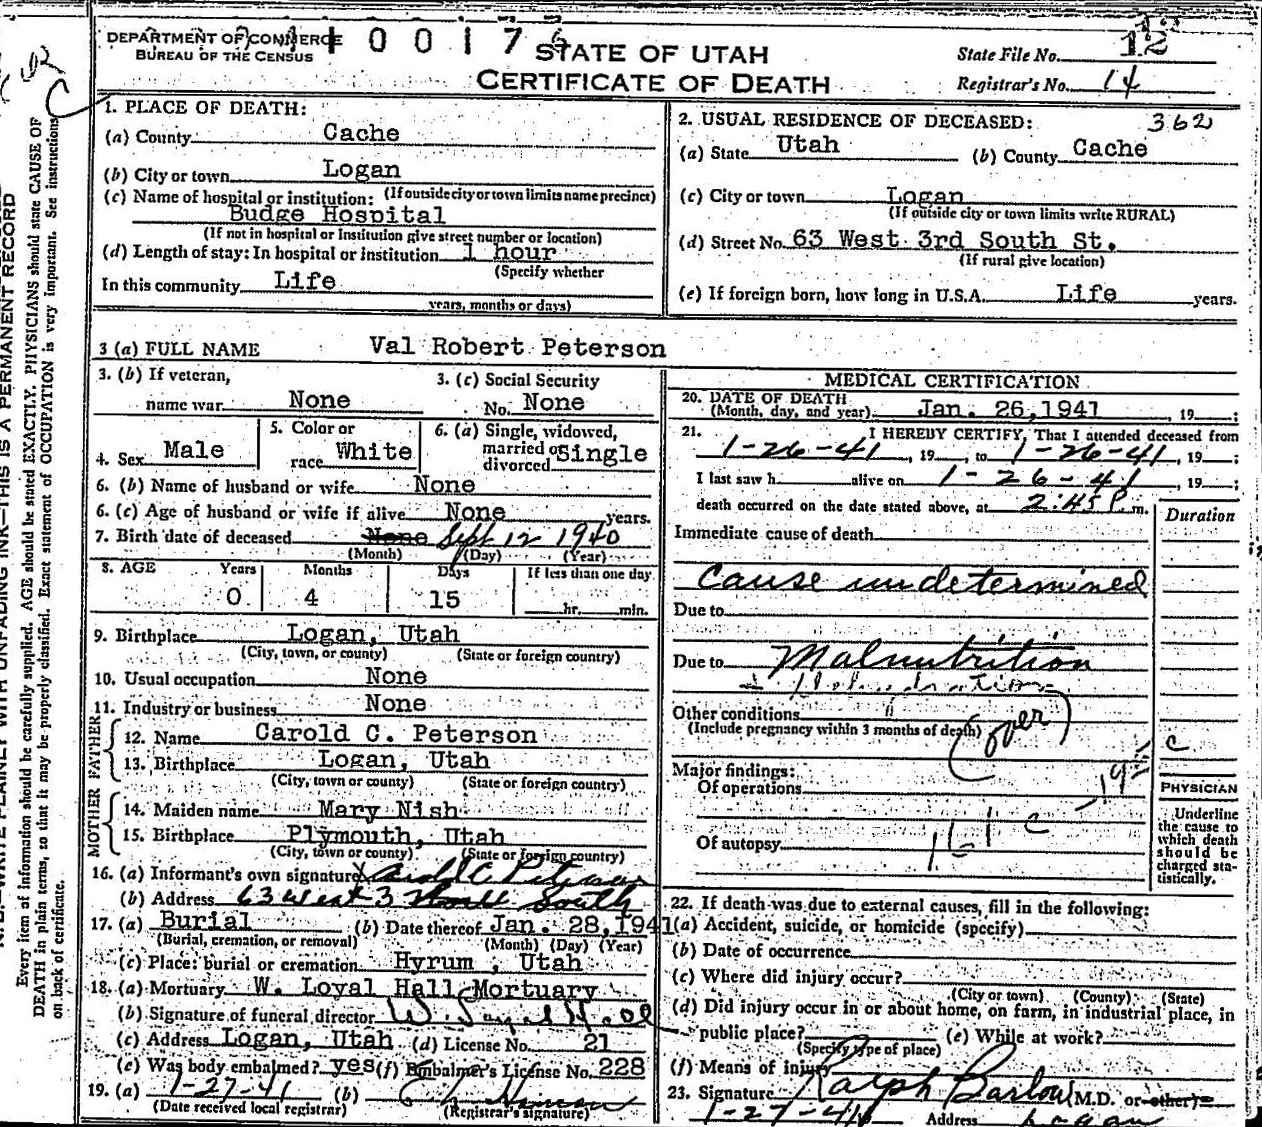 DEPARTMENT OF COMMERCE
BUREAU OF THE CENSUS
0 0 1 7
STATE OF UTAH
CERTIFICATE OF DEATH
State File No. 12
Registrar's No. 14
1. PLACE OF DEATH:
(a) County Cache
(b) City or town Logan
(If outside city or town limits name precinct)
(c) Name of hospital or institution:
Budge Hospital
(If not in hospital or Institution give street number or location)
(d) Length of stay: In hospital or institution 1 hour
(Specify whether
In this community Life
years, months or days)
2. USUAL RESIDENCE OF DECEASED: 362
(a) State Utah (b) County Cache
(c) City or town Logan
(If outside city or town limits write RURAL)
(d) Street No. 63 West 3rd South St.
(If rural give location)
(e) If foreign born, how long in U.S.A. Life years.
3 (a) FULL NAME Val Robert Peterson
3. (b) If veteran,
name war None
3. (c) Social Security
No. None
4. Sex Male
5. Color or
race White
6. (a) Single, widowed,
married or
divorced Single
6. (b) Name of husband or wife None
6. (c) Age of husband or wife if alive None years.
7. Birth date of deceased None Sept 12 1940
(Month) (Day) (Year)
8. AGE Years Months Days If less than one day
0 4 15 hr. min.
9. Birthplace Logan, Utah
(City, town, or county) (State or foreign country)
10. Usual occupation None
11. Industry or business None
FATHER
12. Name Carold C. Peterson
13. Birthplace Logan, Utah
(City, town or county) (State or foreign country)
MOTHER
14. Maiden name Mary Nish
15. Birthplace Plymouth, Utah
(City, town or county) (State or foreign country)
16. (a) Informant's own signature Carold C Peterson
(b) Address 63 West 3 South
17. (a) Burial (b) Date thereof Jan. 28, 1941
(Burial, cremation, or removal) (Month) (Day) (Year)
(c) Place: burial or cremation Hyrum, Utah
18. (a) Mortuary W. Loyal Hall Mortuary
(b) Signature of funeral director W. Loyal Hall
(c) Address Logan, Utah (d) License No. 21
(e) Was body embalmed? yes (f) Embalmer's License No. 228
19. (a) 1-27-41 (b)
(Date received local registrar) (Registrar's signature)
MEDICAL CERTIFICATION
20. DATE OF DEATH
(Month, day, and year) Jan. 26, 1941, 19 ;
21. I HEREBY CERTIFY, That I attended deceased from
1-26-41, 19 , to 1-26-41, 19 ;
I last saw h alive on 1-26-41, 19 ;
death occurred on the date stated above, at 2:45 P. m.
Duration
Immediate cause of death
Cause undetermined
Due to
Due to Malnutrition
Other conditions
(Include pregnancy within 3 months of death)
(over)
Major findings:
Of operations
Of autopsy
PHYSICIAN
Underline
the cause to
which death
should be
charged sta-
tistically.
22. If death was due to external causes, fill in the following:
(a) Accident, suicide, or homicide (specify)
(b) Date of occurrence
(c) Where did injury occur?
(City or town) (County) (State)
(d) Did injury occur in or about home, on farm, in industrial place, in
public place? (e) While at work?
(Specify type of place)
(f) Means of injury
23. Signature Ralph Barlow (M.D. or other)
1-27-41 Address Logan
WRITE PLAINLY WITH UNFADING INK—THIS IS A PERMANENT RECORD
Every item of information should be carefully supplied. AGE should be stated EXACTLY. PHYSICIANS should state CAUSE OF
DEATH in plain terms, so that it may be properly classified. Exact statement of OCCUPATION is very important. See instructions
on back of certificate.